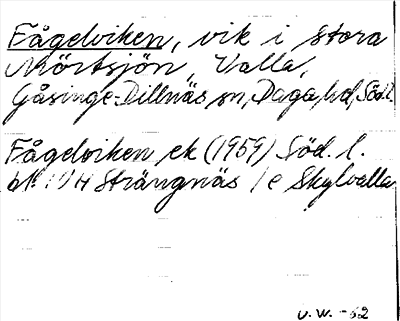 Fågelviken, vik i stora
Mörtsjön, Valla,
Gåsinge-Dillnäs sn, Daga hd, Söd. l.
Fågelviken ek (1959) Söd. l.
bl. 10H Strängnäs / e Skylvalla
U.W. -62